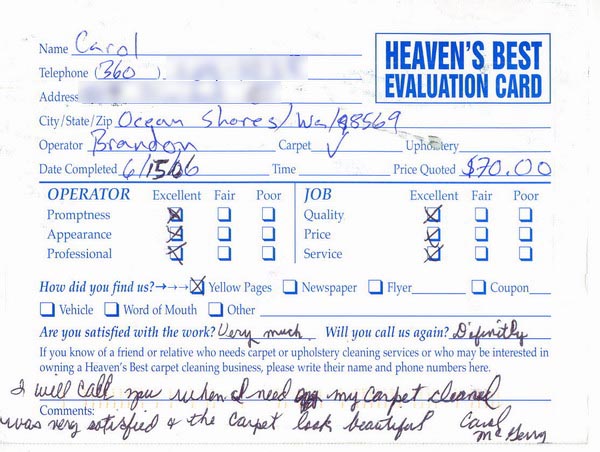 Name Carol
HEAVEN'S BEST
EVALUATION CARD
Telephone (360)
Address
City/State/Zip Ocean Shores/Wa/98569
Operator Brandon Carpet ✓ Upholstery
Date Completed 6/15/06 Time Price Quoted $70.00
OPERATOR Excellent Fair Poor JOB Excellent Fair Poor
Promptness ☒ ☐ ☐ Quality ☒ ☐ ☐
Appearance ☒ ☐ ☐ Price ☒ ☐ ☐
Professional ☒ ☐ ☐ Service ☒ ☐ ☐
How did you find us?→→→ ☒ Yellow Pages ☐ Newspaper ☐ Flyer ☐ Coupon
☐ Vehicle ☐ Word of Mouth ☐ Other
Are you satisfied with the work? Very much. Will you call us again? Definitly
If you know of a friend or relative who needs carpet or upholstery cleaning services or who may be interested in
owning a Heaven's Best carpet cleaning business, please write their name and phone numbers here.
I will call you when I need my carpet cleaned
Comments:
was very satisfied & the carpet look beautiful Carol